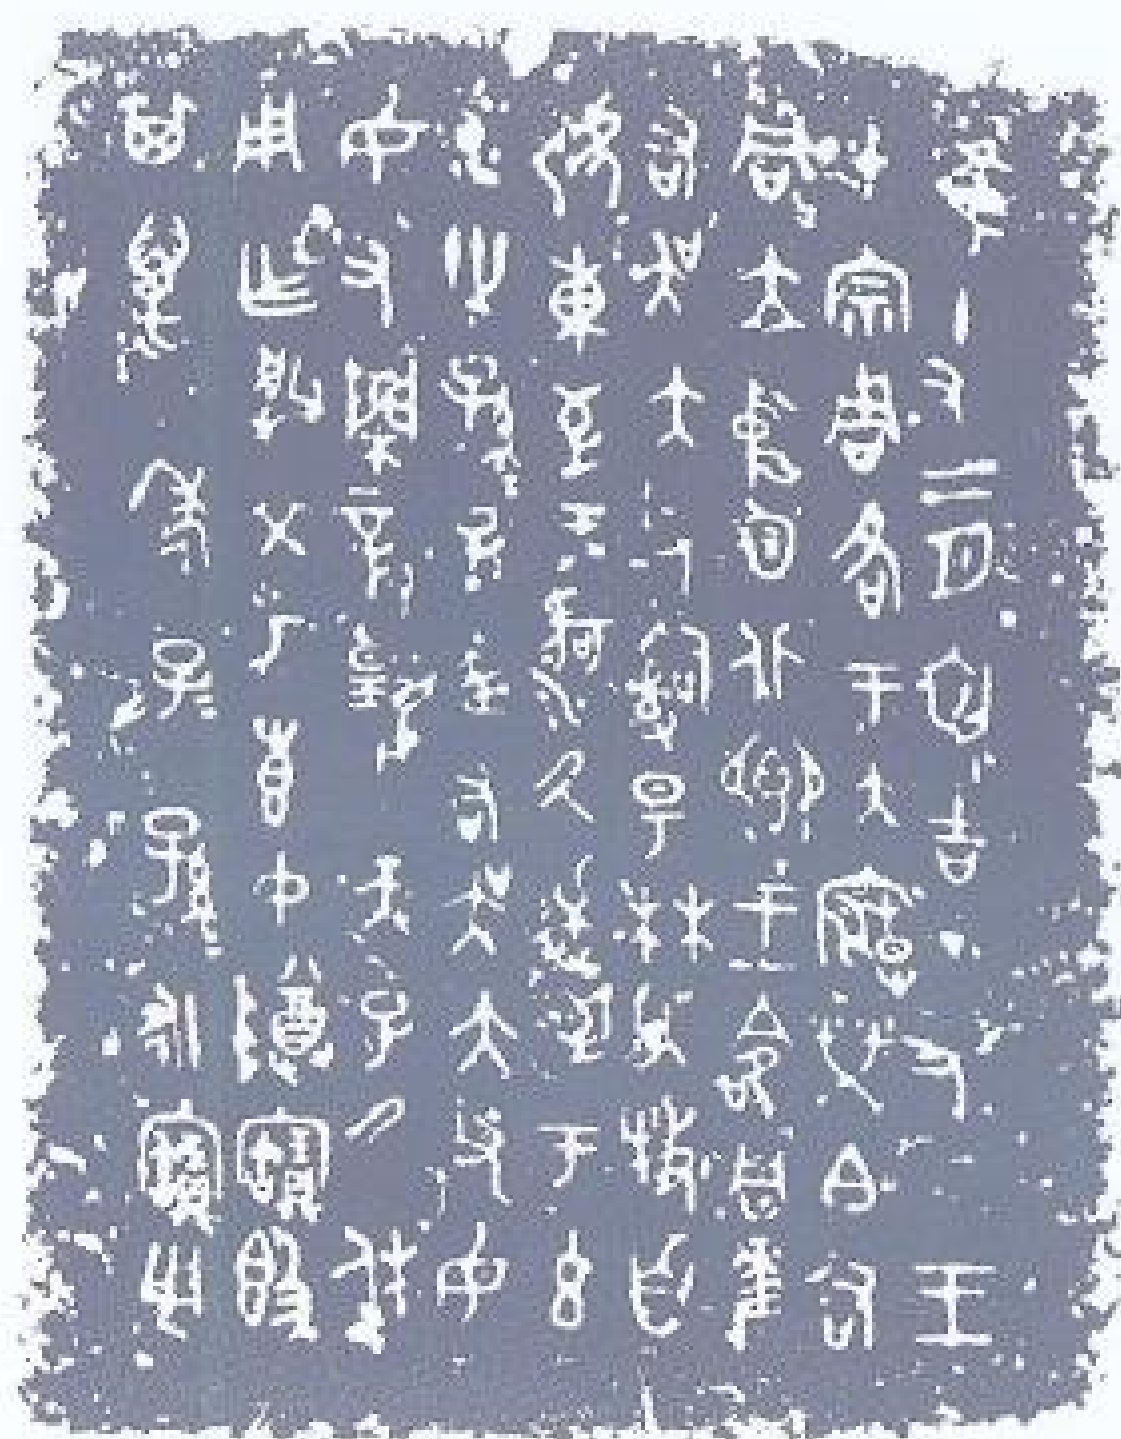 隹十又二月初吉丁丑王
才宗周各于大廟𤇾白右
同立中廷北鄉王命同差
右吳大父𤔲昜林吳牧自
淲東至于河氒逆至于玄
水世孫孫子子差右吳大父母
女又閑對揚天子氒休
用乍朕文考惠中尊寶簋
其萬年子子孫孫永寶用